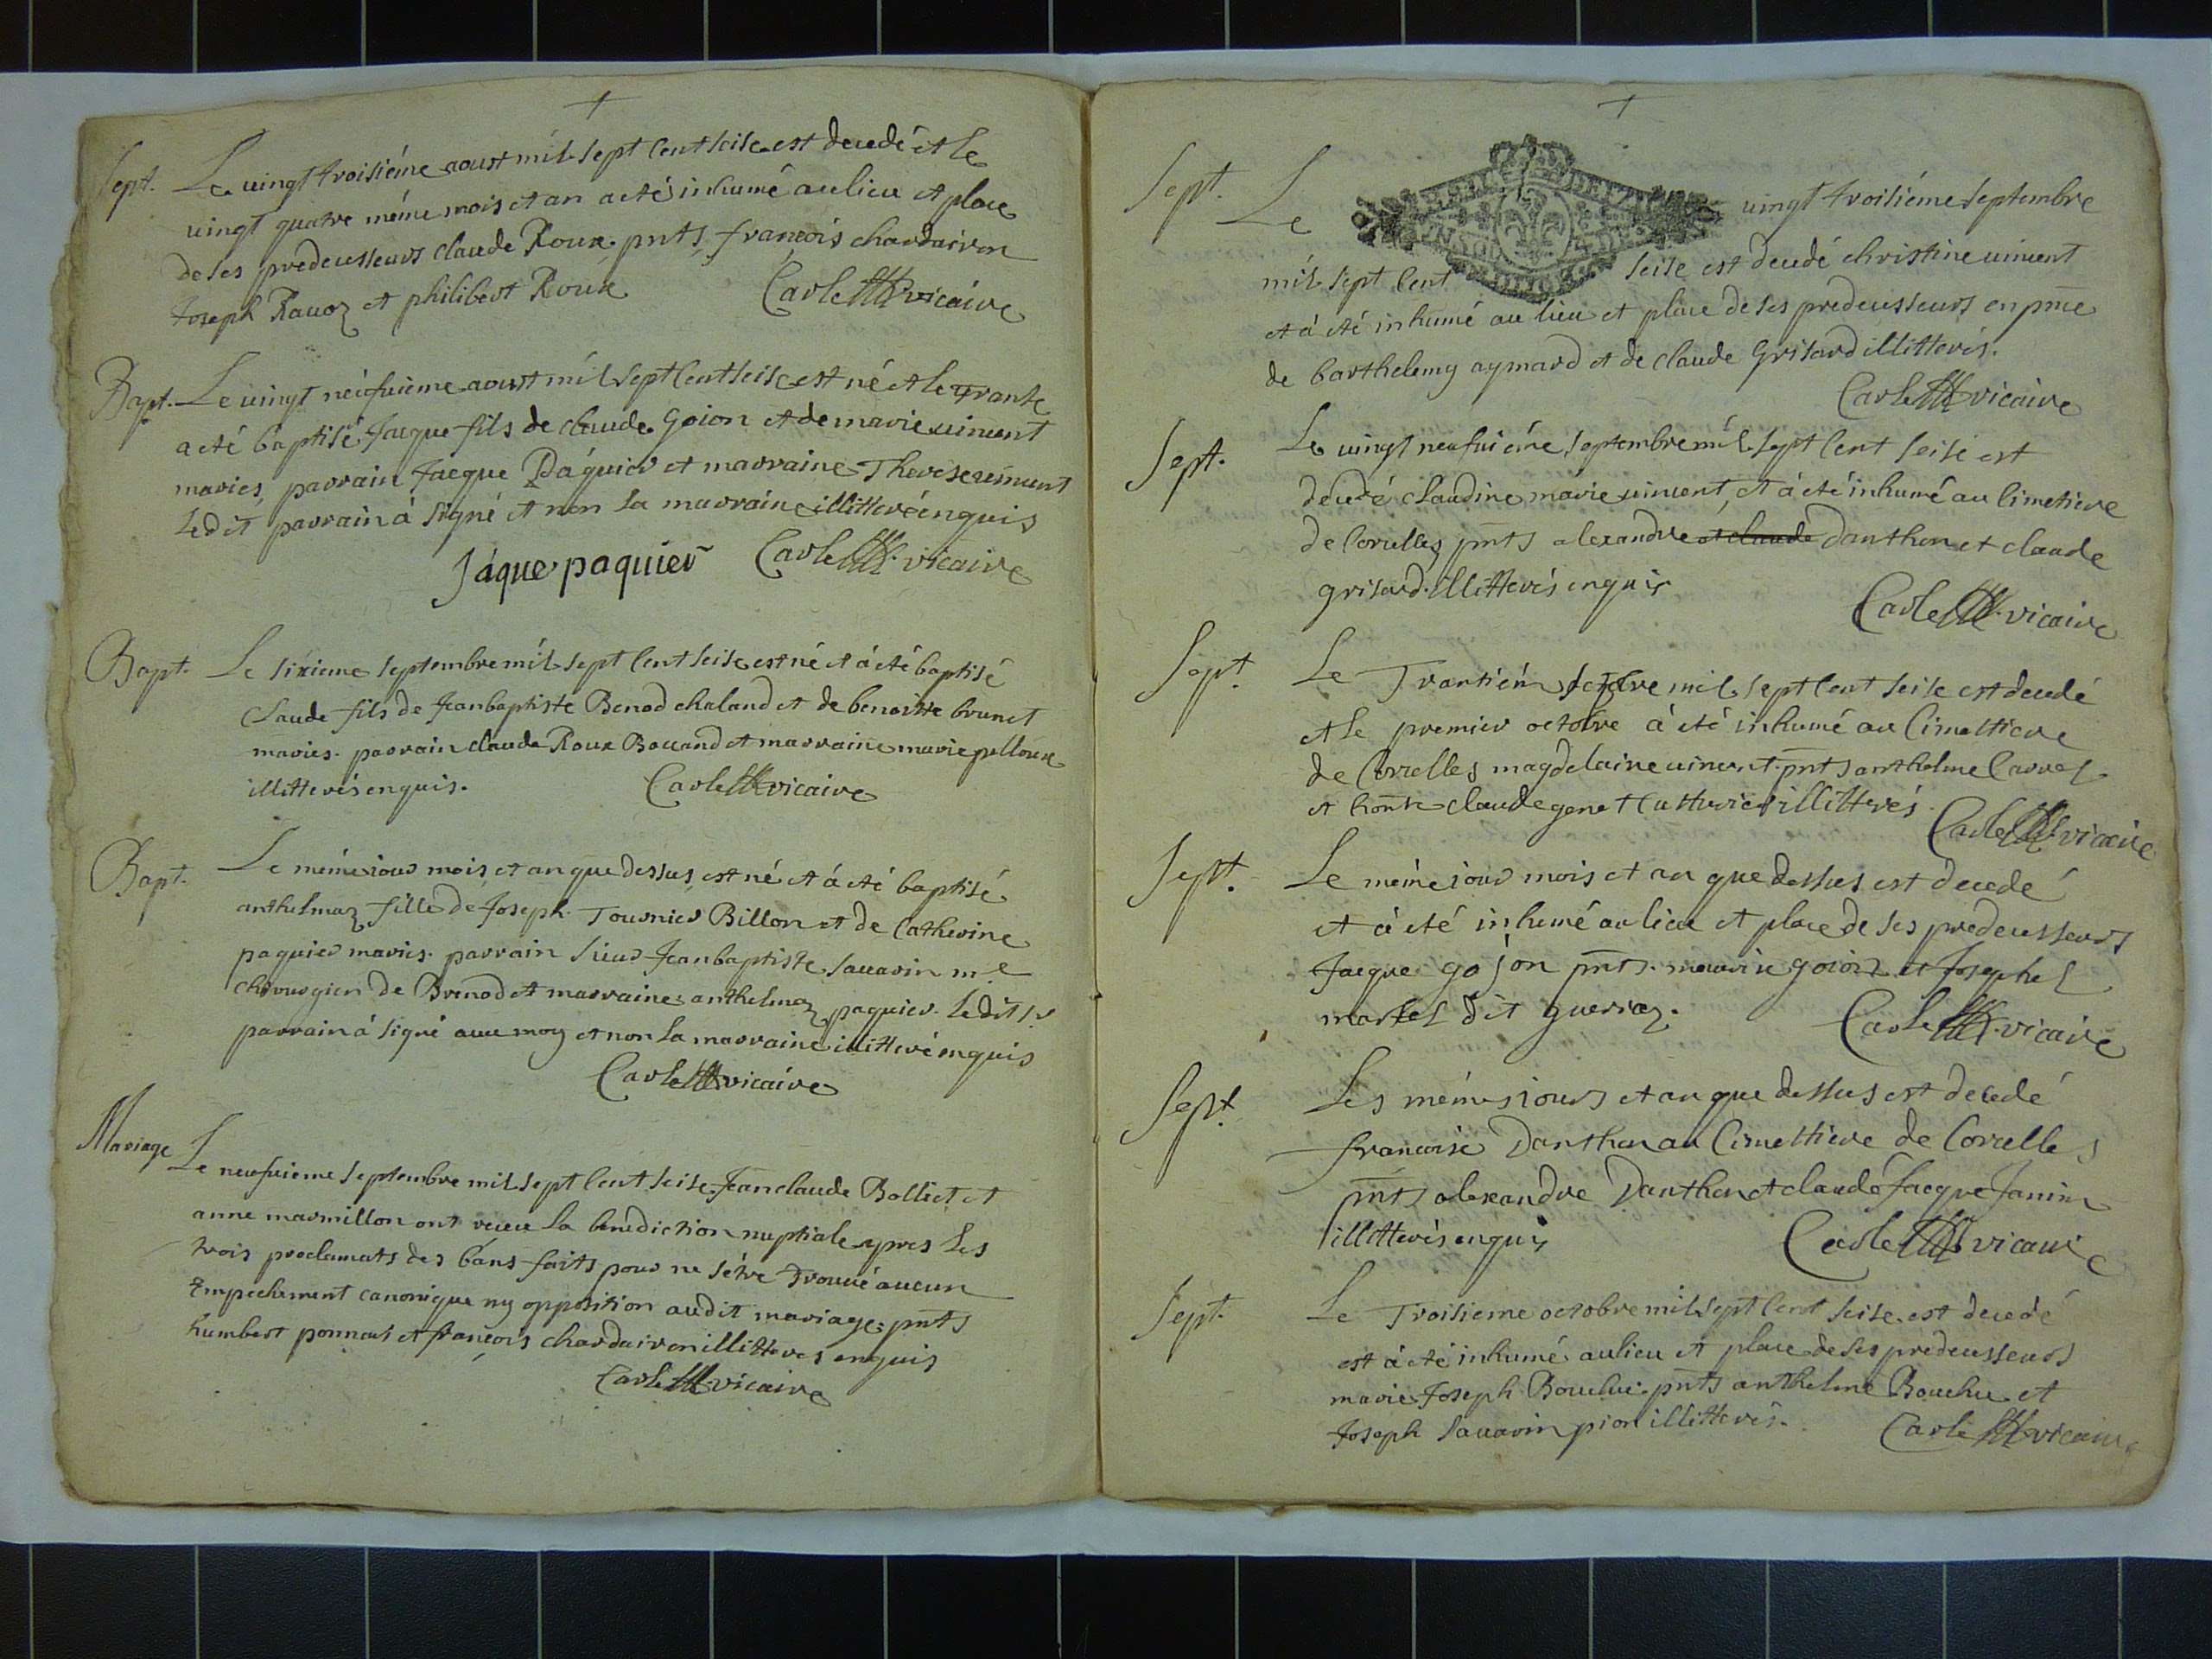 Sept. Le vingt troisiéme aoust mil sept cent seise est decedé et le
vingt quatre méme mois et an a eté inhumé au lieu et place
de ses predecesseurs claude Roux. pnts, françois chardairon
Joseph Rauoz et philibert Roux Carle vicaire
Bapt. Le vingt néufuieme aoust mil sept cent seise est né et le trante
a eté baptisé Jacque fils de claude Goion et de marie uincent
mariés, parrain Jacque Paquier et marraine Therese uincent
Ledit parrain á signé et non la marraine illitteré enquis
Jáque paquier Carle vicaire
Bapt. Le sixieme septembre mil sept cent seise est né et á eté baptisé
Claude fils de Jeanbaptiste Benod chaland et de benoitte brunet
mariés. parrain claude Roux Bouand et marraine marie pelloux
illitterés enquis. Carle vicaire
Bapt. Le méme iour mois et an que dessus est né et á eté baptisé
anthelmaz fille de Joseph Tournier Billon et de Catherine
paquier mariés. parrain sieur Jeanbaptiste sauarin me
chirurgien de Brenod et marraine anthelmaz paquier. Ledit sr
parrain á signé auec moy et non la marraine illitteré enquis
Carle vicaire
Mariage Le neufuieme septembre mil sept cent seise Jean claude Bolliet et
anne marmillon ont receu la benediction nuptiale apres les
trois proclamats des bans faits pour ne s'étre trouué aucun
Empechement canonique ny opposition audit mariage, pnts
humbert ponnard et françois chardairon illitteres enquis
Carle vicaire
Sept. Le vingt troisiéme septembre
mil sept cent seise est decedé christine uincent
et á eté inhumé au lieu et place de ses predecesseurs en pnce
de barthelemy aymard et de claude Grisard illitterés.
Carle vicaire
Sept. Le vingt neufuiéme septembre mil sept cent seise est
decedé claudine marie uincent, et á eté inhumé au Cimetiere
de Corcelles pnts alexandre et claude Danthon et claude
grisard. illitterés enquis
Carle vicaire
Sept. Le Trantiém septbre mil sept cent seise est decedé
et le premier octobre á eté inhumé au Cimettiere
de Corcelles magdelaine uincent. pnts anthelme Carrel
et claude genet illitterés
Carle vicaire
Sept. Le méme iour mois et an que dessus est decedé
et á eté inhumé au lieu et place de ses predecesseurs
Jacque gojon pnts. maurise goion et Joseph
martel dit guerraz.
Carle vicaire
Sept. Les mémes iours et an que dessus est decedé
francoise Danthon au Cimettiere de Corcelles
pnts alexandre Danthon et claude Jacque Janin
illitterés enquis
Carle vicaire
Sept. Le Troisieme octobre mil sept cent seise est decedé
est á eté inhumé au lieu et place de ses predecesseurs
marie Joseph Bouchu. pnts anthelme Bouchu et
Joseph sauarin pion illitterés. Carle vicaire